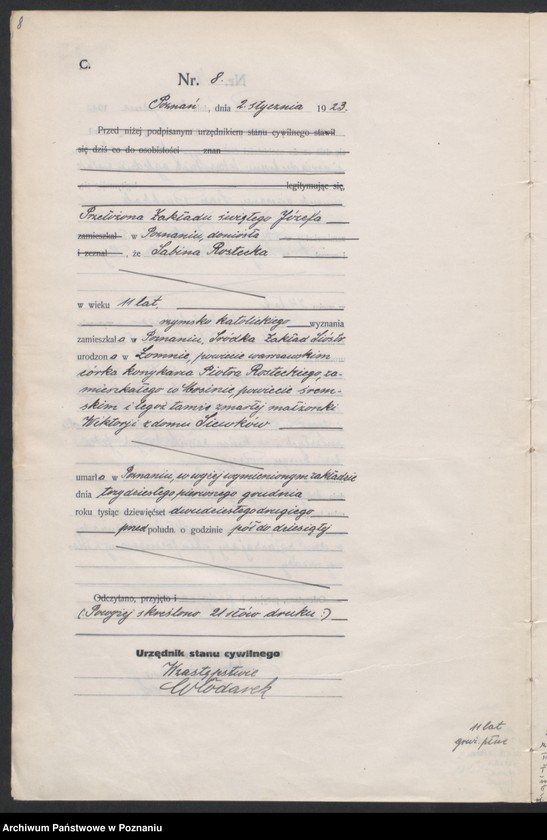 8
C.
Nr. 8.
Poznań, dnia 2. stycznia 1923.
Przed niżej podpisanym urzędnikiem stanu cywilnego stawił
się dziś co do osobistości znan
legitymując się,
Przełożona Zakładu świętego Józefa
zamieszkał w Poznaniu, doniosła
i zeznał, że Sabina Rostecka
w wieku 11 lat,
rzymsko katolickiego wyznania
zamieszkała w Poznaniu, Śródka Zakład Sióstr
urodzona w Łomnie, powiecie
córka Piotra Rosteckiego, za-
mieszkałego w Mosinie, powiecie śrem-
skim i tegoż tamże zmarłej małżonki
Wiktorji z domu
umarła w Poznaniu, w wyżej wymienionym zakładzie
dnia trzydziestego pierwszego grudnia
roku tysiąc dziewięćset dwudziestego drugiego
przed połudn. o godzinie pół do dziesiątej
Odczytano, przyjęto i
(Powyżej skreślono 21 słów druku:)
Urzędnik stanu cywilnego
W zastępstwie
Włodarek
11 lat
Archiwum Państwowe w Poznaniu